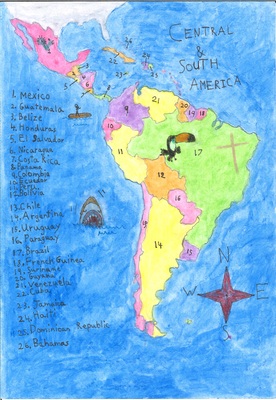 CENTRAL
&
SOUTH
AMERICA
1. MEXICO
2. Guatemala
3. Belize
4. Honduras
5. El Salvador
6. Nicaragua
7. Costa Rica
8. Panama
9. Colombia
10. Ecuador
11. Peru
12. Bolivia
13. Chile
14. Argentina
15. Uruguay
16. Paraguay
17. Brazil
18. French Guinea
19. Suriname
20. Guyana
21. Venezuela
22. Cuba
23. Jamaica
24. Haiti
25. Dominican Republic
26. Bahamas
21
20
19
18
9
10
11
17
12
16
13
14
15
N
W
E
S